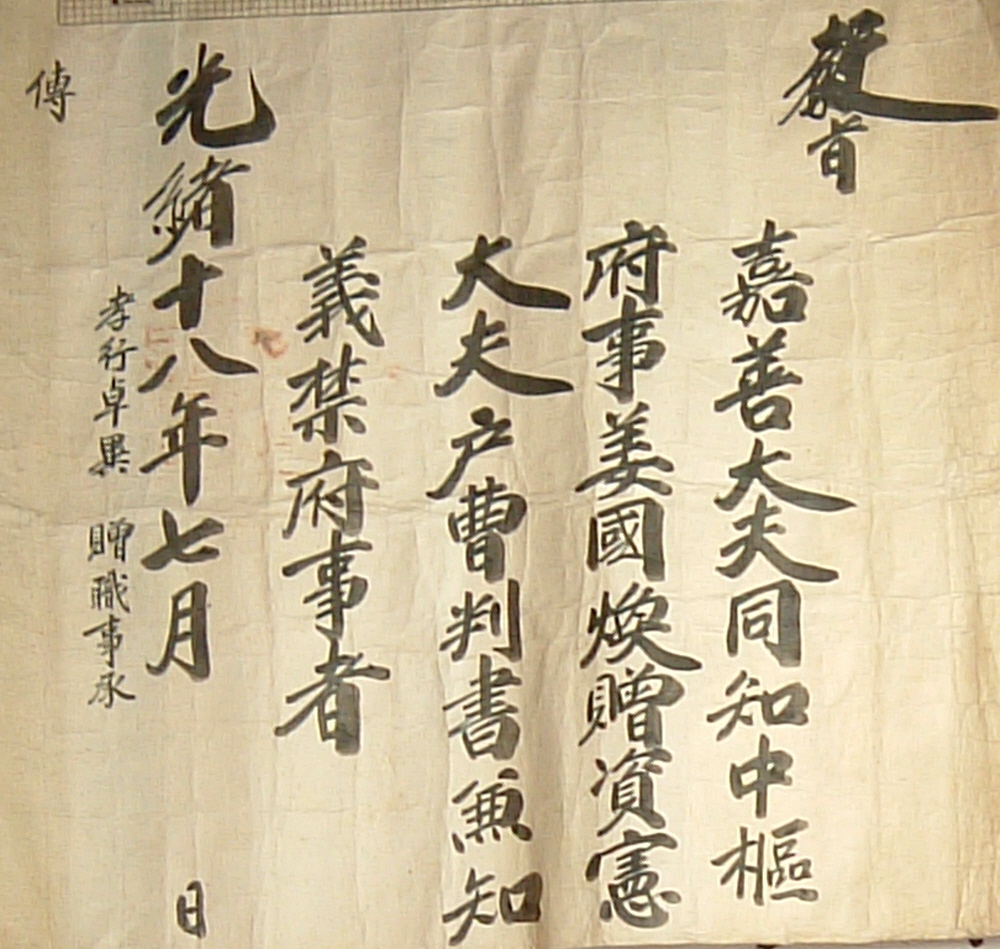 敎旨
嘉善大夫同知中樞
府事姜國煥贈資憲
大夫戶曹判書兼知
義禁府事者
光緖十八年七月 日
孝行卓異 贈職事承
傳